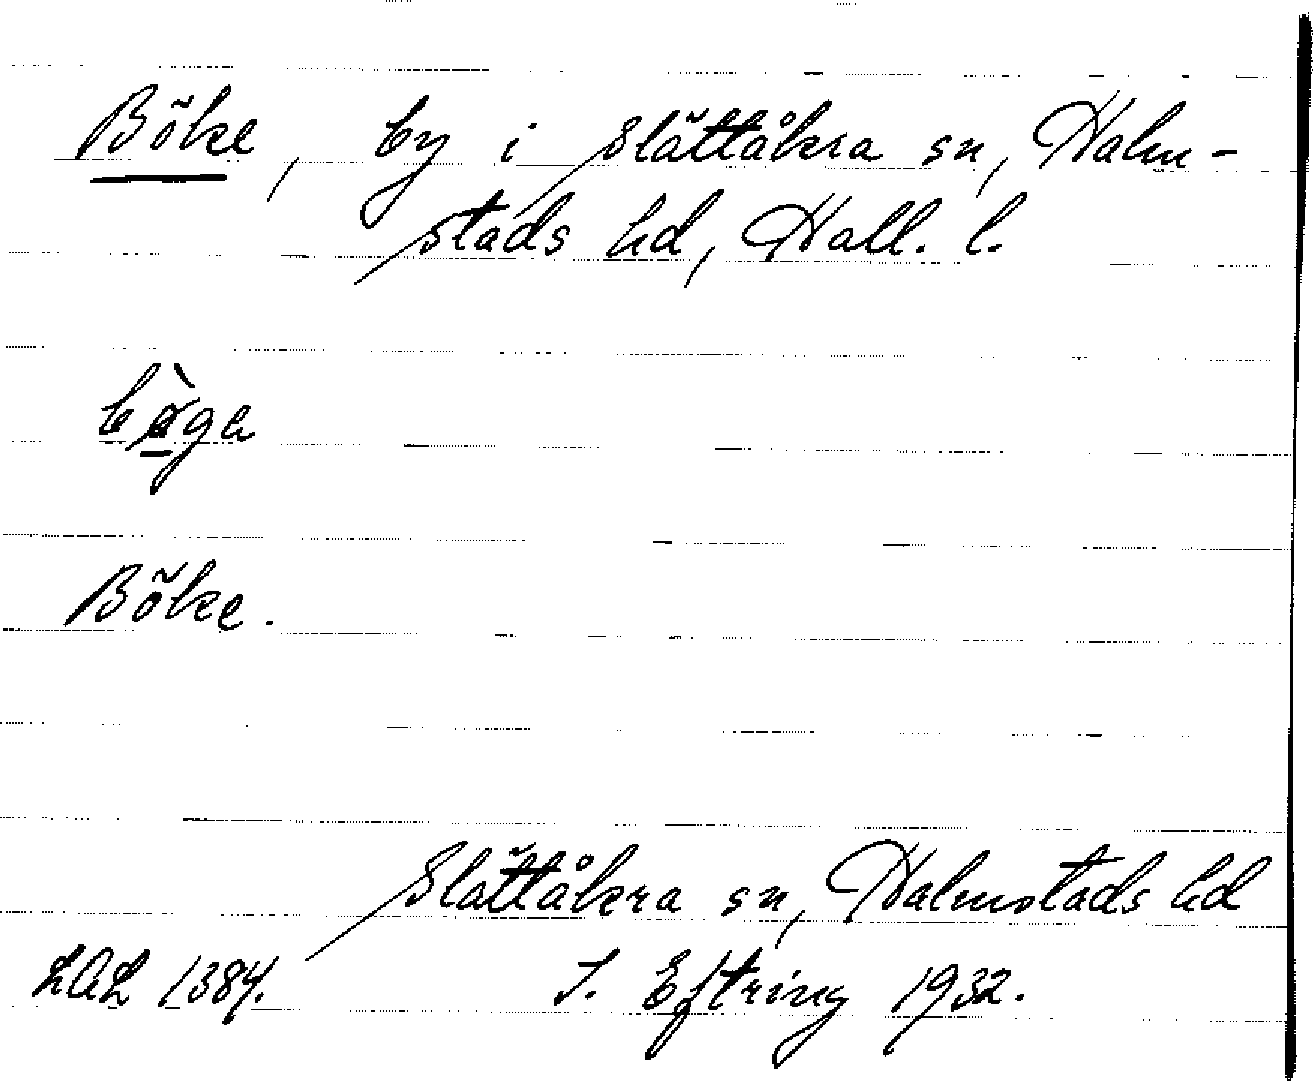 Böke, by i Slättåkra sn, Halm-
stads hd, Hall. l.
bø̠̀ga
Böke.
Slättåkra sn, Halmstads hd
LAL 1384. S. Eftring 1932.